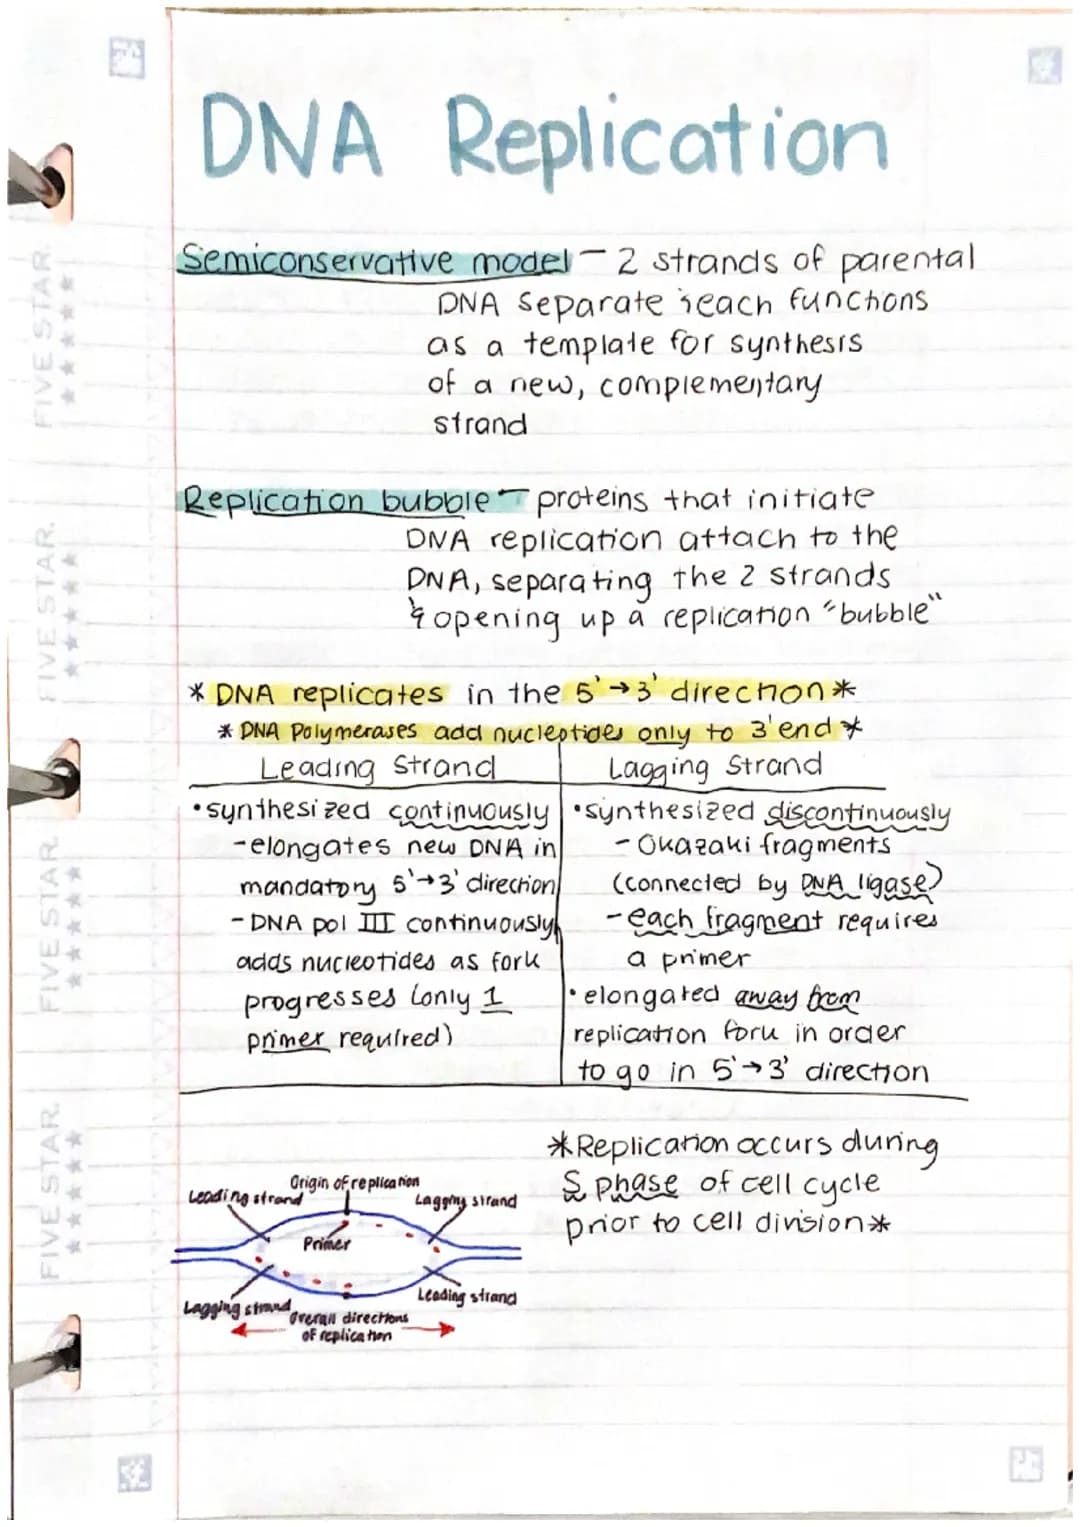 DNA Replication
Semiconservative model - 2 strands of parental
DNA separate & each functions
as a template for synthesis
of a new, complementary
strand
Replication bubble - proteins that initiate
DNA replication attach to the
DNA, separating the 2 strands
& opening up a replication "bubble"
* DNA replicates in the 5'→3' direction *
* DNA Polymerases add nucleotides only to 3' end *
Leading Strand
•synthesized continuously
-elongates new DNA in
mandatory 5'→3' direction
-DNA pol III continuously
adds nucleotides as fork
progresses (only 1
primer required)
Lagging Strand
•synthesized discontinuously
- Okazaki fragments
(connected by DNA ligase)
-each fragment requires
a primer
•elongated away from
replication fork in order
to go in 5'→3' direction
*Replication occurs during
S phase of cell cycle
prior to cell division*
Origin of replication
Leading strand
Lagging strand
Primer
Leading strand
Lagging strand
Overall directions
of replication
FIVE STAR.
FIVE STAR.
FIVE STAR.
FIVE STAR.